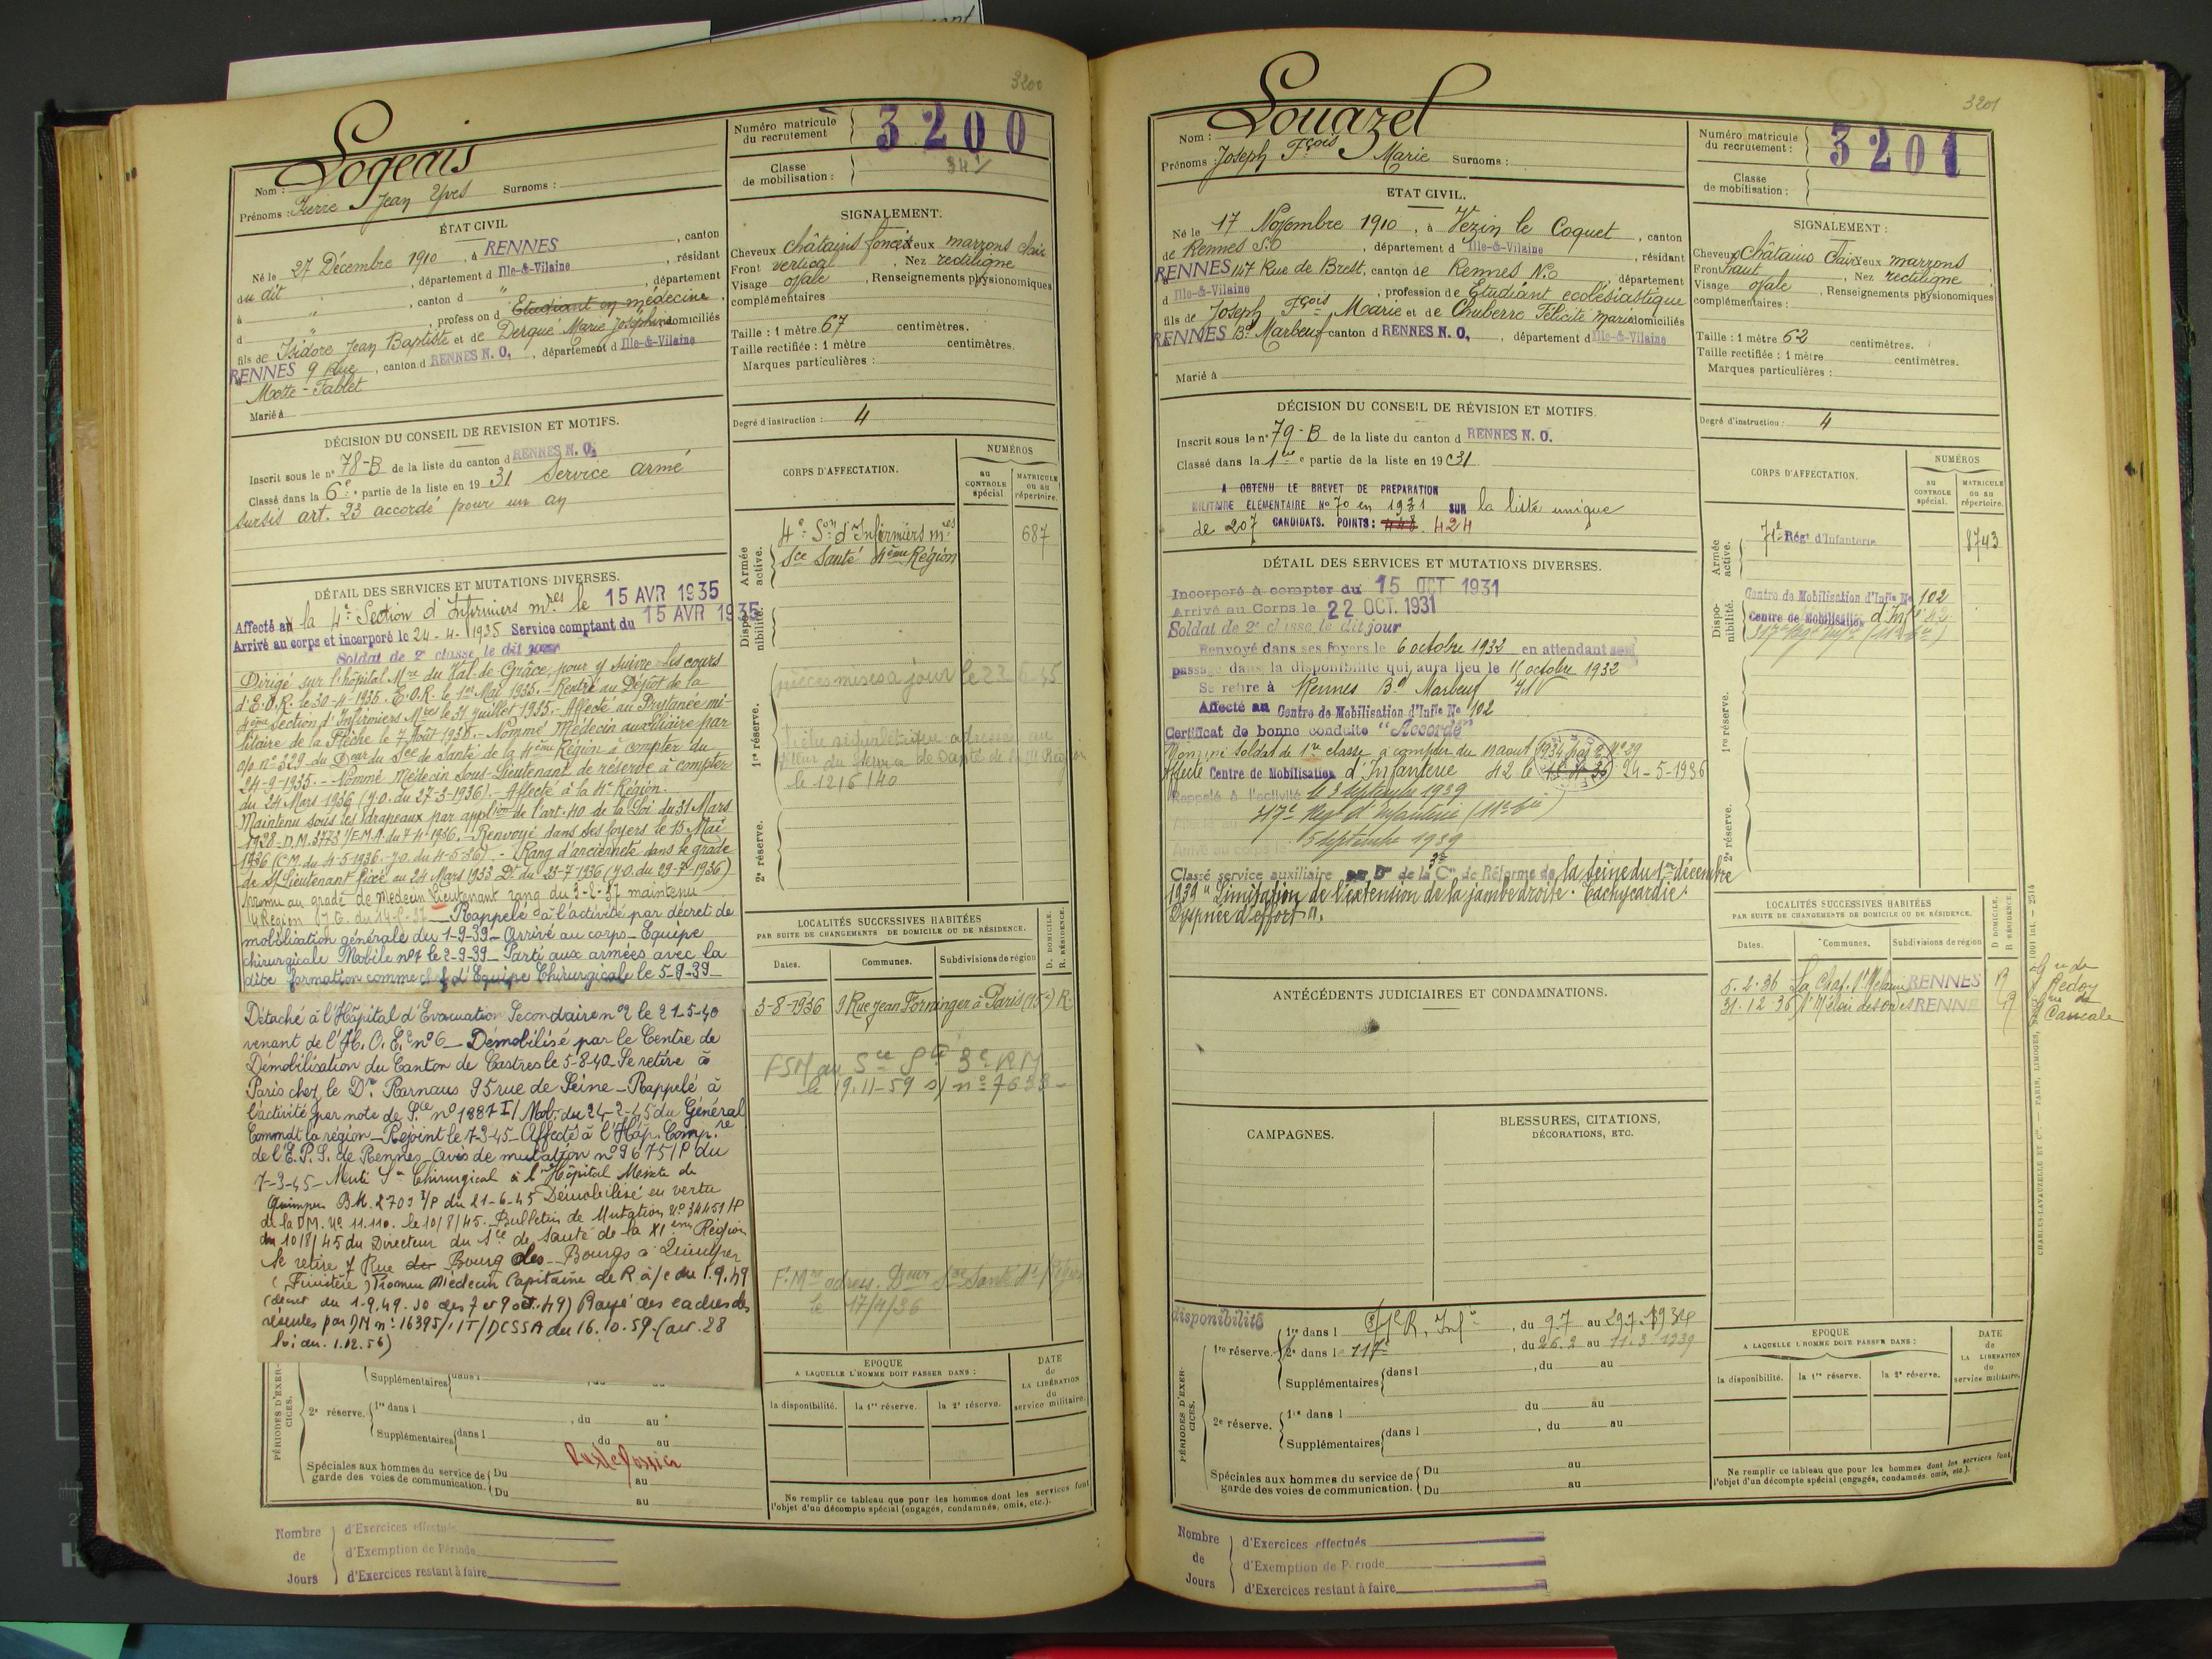 3200
Nom : Logeais
Prénoms : Pierre Jean Yves Surnoms :
Numéro matricule du recrutement 3200
Classe de mobilisation :
ÉTAT CIVIL
Né le 27 Décembre 1910, à RENNES, canton
du dit, département d Ille-&-Vilaine, résidant
à " , canton d " , département
d " , profession d Etudiant en médecine,
fils de Isidore Jean Baptiste et de Derqué Marie Joséphine domiciliés
RENNES 9 Rue, canton d RENNES N. O., département d Ille-&-Vilaine
Motte-Fablet
Marié à
SIGNALEMENT.
Cheveux châtains foncés Yeux marrons clair
Front vertical, Nez rectiligne
Visage ovale, Renseignements physionomiques
complémentaires
Taille : 1 mètre 67 centimètres.
Taille rectifiée : 1 mètre centimètres.
Marques particulières :
Degré d'instruction : 4
DÉCISION DU CONSEIL DE REVISION ET MOTIFS.
Inscrit sous le n° 78-B de la liste du canton d RENNES N. O.
Classé dans la 6e partie de la liste en 19 31 Service armé
sursis art. 23 accordé pour un an
DÉTAIL DES SERVICES ET MUTATIONS DIVERSES.
Affecté au la 4e Section d'Infirmiers mres le 15 AVR 1935
Arrivé au corps et incorporé le 24-4-1935 Service comptant du 15 AVR 1935
Soldat de 2e classe le dit jour
Dirigé sur l'hôpital Mre du Val-de-Grâce, pour y suivre les cours
d'E.O.R. le 30-4-1935. E.O.R. le 1er Mai 1935. - Rentré au Dépôt de la
4ème Section d'Infirmiers Mres le 31 Juillet 1935. - Affecté au Prytanée mi-
litaire de la Flèche le 7 Août 1935. - Nommé Médecin auxiliaire par
o/o n° 329 du Deur du Sce de Santé de la 4ème Région à compter du
24-9-1935. - Nommé Médecin Sous-Lieutenant de réserve à compter
du 24 Mars 1936 (J.O. du 27-3-1936). - Affecté à la 4e Région.
Maintenu sous les drapeaux par applion de l'art. 40 de la Loi du 31 Mars
1928 - D.M. 3773 1/E.M.A. du 7-4-1936. - Renvoyé dans ses foyers le 15 Mai
1936 (C.M. du 4-5-1936 - J.O. du 4-5-36). - Rang d'ancienneté dans le grade
de S/Lieutenant fixé au 24 Mars 1933 Dt du 25-7-1936 (J.O. du 29-7-1936)
promu au grade de Médecin Lieutenant rang du 3-8-37 maintenu
Rappelé à l'activité par décret de
mobilisation générale du 1-9-39 - Arrivé au corps - Equipe
chirurgicale Mobile n°7 le 2-9-39 - Parti aux armées avec la
dite formation comme chef d'Equipe Chirurgicale le 5-9-39
Détaché à l'Hôpital d'Evacuation Secondaire n° 2 le 21-5-40
venant de l'H.O.E. n° 6 - Démobilisé par le Centre de
Démobilisation du Canton de Castres le 5-8-40 - Se retire à
Paris chez le Dr Rarnaus 95 rue de Seine - Rappelé à
l'activité par note de Sce n° 1887 I/Mob. du 24-2-45 du Général
Commdt la région - Rejoint le 7-3-45 - Affecté à l'Hôp. Comp.re
de l'E.P.S. de Rennes - avis de mutation n° 9675/P du
7-3-45 - Muté Son Chirurgical à l'Hôpital Mixte de
Quimper BM. 2703 1/P du 21-6-45 Démobilisé en vertu
de la DM. N° 11.110. le 10/8/45. Bulletin de Mutation N° 34451/P
du 10/8/45 du Directeur du Sce de Santé de la XIème Région
Se retire 7 Rue du Bourg des Bourgs à Quimper
(Finistère) Promu Médecin Capitaine de R. à/c du 1.9.49
(décret du 1-9.49. JO des 7 et 9 oct. 49) Rayé des cadres des
réserves par DM n° 16395/1T/DCSSA du 16.10.59 (art. 28
loi du 1.12.56)
CORPS D'AFFECTATION.
NUMÉROS
au CONTROLE spécial.
MATRICULE ou au répertoire.
Armée active.
4e Son d'Infirmiers mres 687
Sce Santé 4ème Région
Disponibilité.
1re réserve.
pièces mises à jour le 23
le 12/6/40
2e réserve.
LOCALITÉS SUCCESSIVES HABITÉES
PAR SUITE DE CHANGEMENTS DE DOMICILE OU DE RÉSIDENCE.
D. DOMICILE. R. RÉSIDENCE.
Dates. Communes. Subdivisions de région
3-8-1936 9 Rue Jean Formingér à Paris (15e) R.
FSM au Sce Sté 3e RM
le 19.11-59 s/ n° 7633-
F. Mre adress. Deur Sce Santé 4e Région
le 17/4/36
PÉRIODES D'EXERCICES.
Supplémentaires dans l , du au
2e réserve. 1re dans l , du au
Supplémentaires dans l , du au
Spéciales aux hommes du service de garde des voies de communication. Du au
Du au
EPOQUE
A LAQUELLE L'HOMME DOIT PASSER DANS :
la disponibilité. la 1re réserve. la 2e réserve.
DATE de LA LIBÉRATION du service militaire.
Ne remplir ce tableau que pour les hommes dont les services font
l'objet d'un décompte spécial (engagés, condamnés, omis, etc.).
Nombre de Jours
d'Exercices effectués
d'Exemption de Période
d'Exercices restant à faire
3201
Nom : Louazel
Prénoms : Joseph Fçois Marie Surnoms :
Numéro matricule du recrutement : 3201
Classe de mobilisation :
ETAT CIVIL.
Né le 17 Novembre 1910, à Vezin le Coquet, canton
de Rennes S.O, département d Ille-&-Vilaine, résidant
RENNES 147 Rue de Brest, canton de Rennes N.O, département
d Ille-&-Vilaine, profession de Etudiant ecclésiastique
fils de Joseph Fçois Marie et de Chuberre Félicité Marie domiciliés
RENNES Bd Marbeuf canton d RENNES N. O., département d Ille-&-Vilaine
Marié à
SIGNALEMENT :
Cheveux Châtains Clair Yeux marrons
Front haut, Nez rectiligne
Visage ovale, Renseignements physionomiques
complémentaires :
Taille : 1 mètre 62 centimètres.
Taille rectifiée : 1 mètre centimètres.
Marques particulières :
Degré d'instruction : 4
DÉCISION DU CONSEIL DE RÉVISION ET MOTIFS.
Inscrit sous le n° 79-B de la liste du canton d RENNES N. O.
Classé dans la 1re partie de la liste en 19 31
A OBTENU LE BREVET DE PREPARATION
MILITAIRE ELEMENTAIRE N° 70 en 1931 SUR la liste unique
de 207 CANDIDATS. POINTS : 424
DÉTAIL DES SERVICES ET MUTATIONS DIVERSES.
Incorporé à compter du 15 OCT 1931
Arrivé au Corps le 22 OCT. 1931
Soldat de 2e classe le dit jour
Renvoyé dans ses foyers le 6 octobre 1932 en attendant son
passage dans la disponibilité qui aura lieu le 15 octobre 1932
Se retire à Rennes Bd Marbeuf
Affecté au Centre de Mobilisation d'Inf'ie No 102
Certificat de bonne conduite "Accordé"
Nommé Soldat de 1re classe à compter du 11 aout 1934
Affecté Centre de Mobilisation d'Infanterie 42 le 24-5-1936
Rappelé à l'activité le 3 Septembre 1939
Affecté au 117e Régt d'Infanterie
Arrivé au corps le 5 Septembre 1939
Classé service auxiliaire 3e de la Con de Réforme de la Seine du 1er décembre
1939 "Limitation de l'extension de la jambe droite. Tachycardie.
Dyspnée d'effort".
CORPS D'AFFECTATION.
NUMÉROS
au CONTROLE spécial.
MATRICULE ou au répertoire.
Armée active.
71e Régt d'Infanterie 8743
Disponibilité.
Centre de Mobilisation d'Inf'ie No 102
Centre de Mobilisation d'Infie 42
1re réserve.
2e réserve.
ANTÉCÉDENTS JUDICIAIRES ET CONDAMNATIONS.
CAMPAGNES.
BLESSURES, CITATIONS,
DÉCORATIONS, ETC.
LOCALITÉS SUCCESSIVES HABITÉES
PAR SUITE DE CHANGEMENTS DE DOMICILE OU DE RÉSIDENCE.
D. DOMICILE. R. RÉSIDENCE.
Dates. Communes. Subdivisions de région
5.2.36 La Chap. St Melaine RENNES R
31.12.36 St Méloir des Ondes RENNES R
Gne de Redon
Gne de Cancale
disponibilité
PÉRIODES D'EXERCICES.
1re réserve. 1re dans l , du 9.7 au 29.7.1934
2e dans l 117e , du 26.2 au 11.3.1939
Supplémentaires dans l , du au
2e réserve. 1re dans l du au
Supplémentaires dans l , du au
Spéciales aux hommes du service de garde des voies de communication. Du au
Du au
EPOQUE
A LAQUELLE L'HOMME DOIT PASSER DANS :
la disponibilité. la 1re réserve. la 2e réserve.
DATE de LA LIBÉRATION du service militaire.
Ne remplir ce tableau que pour les hommes dont les services font
l'objet d'un décompte spécial (engagés, condamnés, omis, etc.).
CHARLES-LAVAUZELLE ET Cie. — PARIS, LIMOGES, NANCY
Nombre de Jours
d'Exercices effectués
d'Exemption de Période
d'Exercices restant à faire